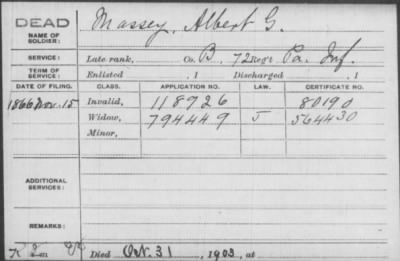 DEAD
NAME OF SOLDIER: Massey, Albert G.
SERVICE: Late rank, Co. B, 72 Reg't Pa. Inf.
TERM OF SERVICE: Enlisted , 1 Discharged , 1
DATE OF FILING. CLASS. APPLICATION NO. LAW. CERTIFICATE NO.
1866 Nov. 15 Invalid, 118926 80190
Widow, 794449 J 564430
Minor,
ADDITIONAL SERVICES:
REMARKS:
Died Oct. 31, 1903, at